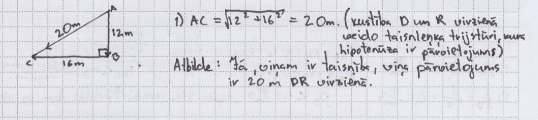 A
20m
12m
C
B
16m
1) AC = √12² + 16² = 20m. (kustība D un R virzienā
veido taisnleņķa trijstūri, kura
hipotenūza ir pārvietojums)
Atbilde: Jā, viņam ir taisnība, viņa pārvietojums
ir 20 m DR virzienā.